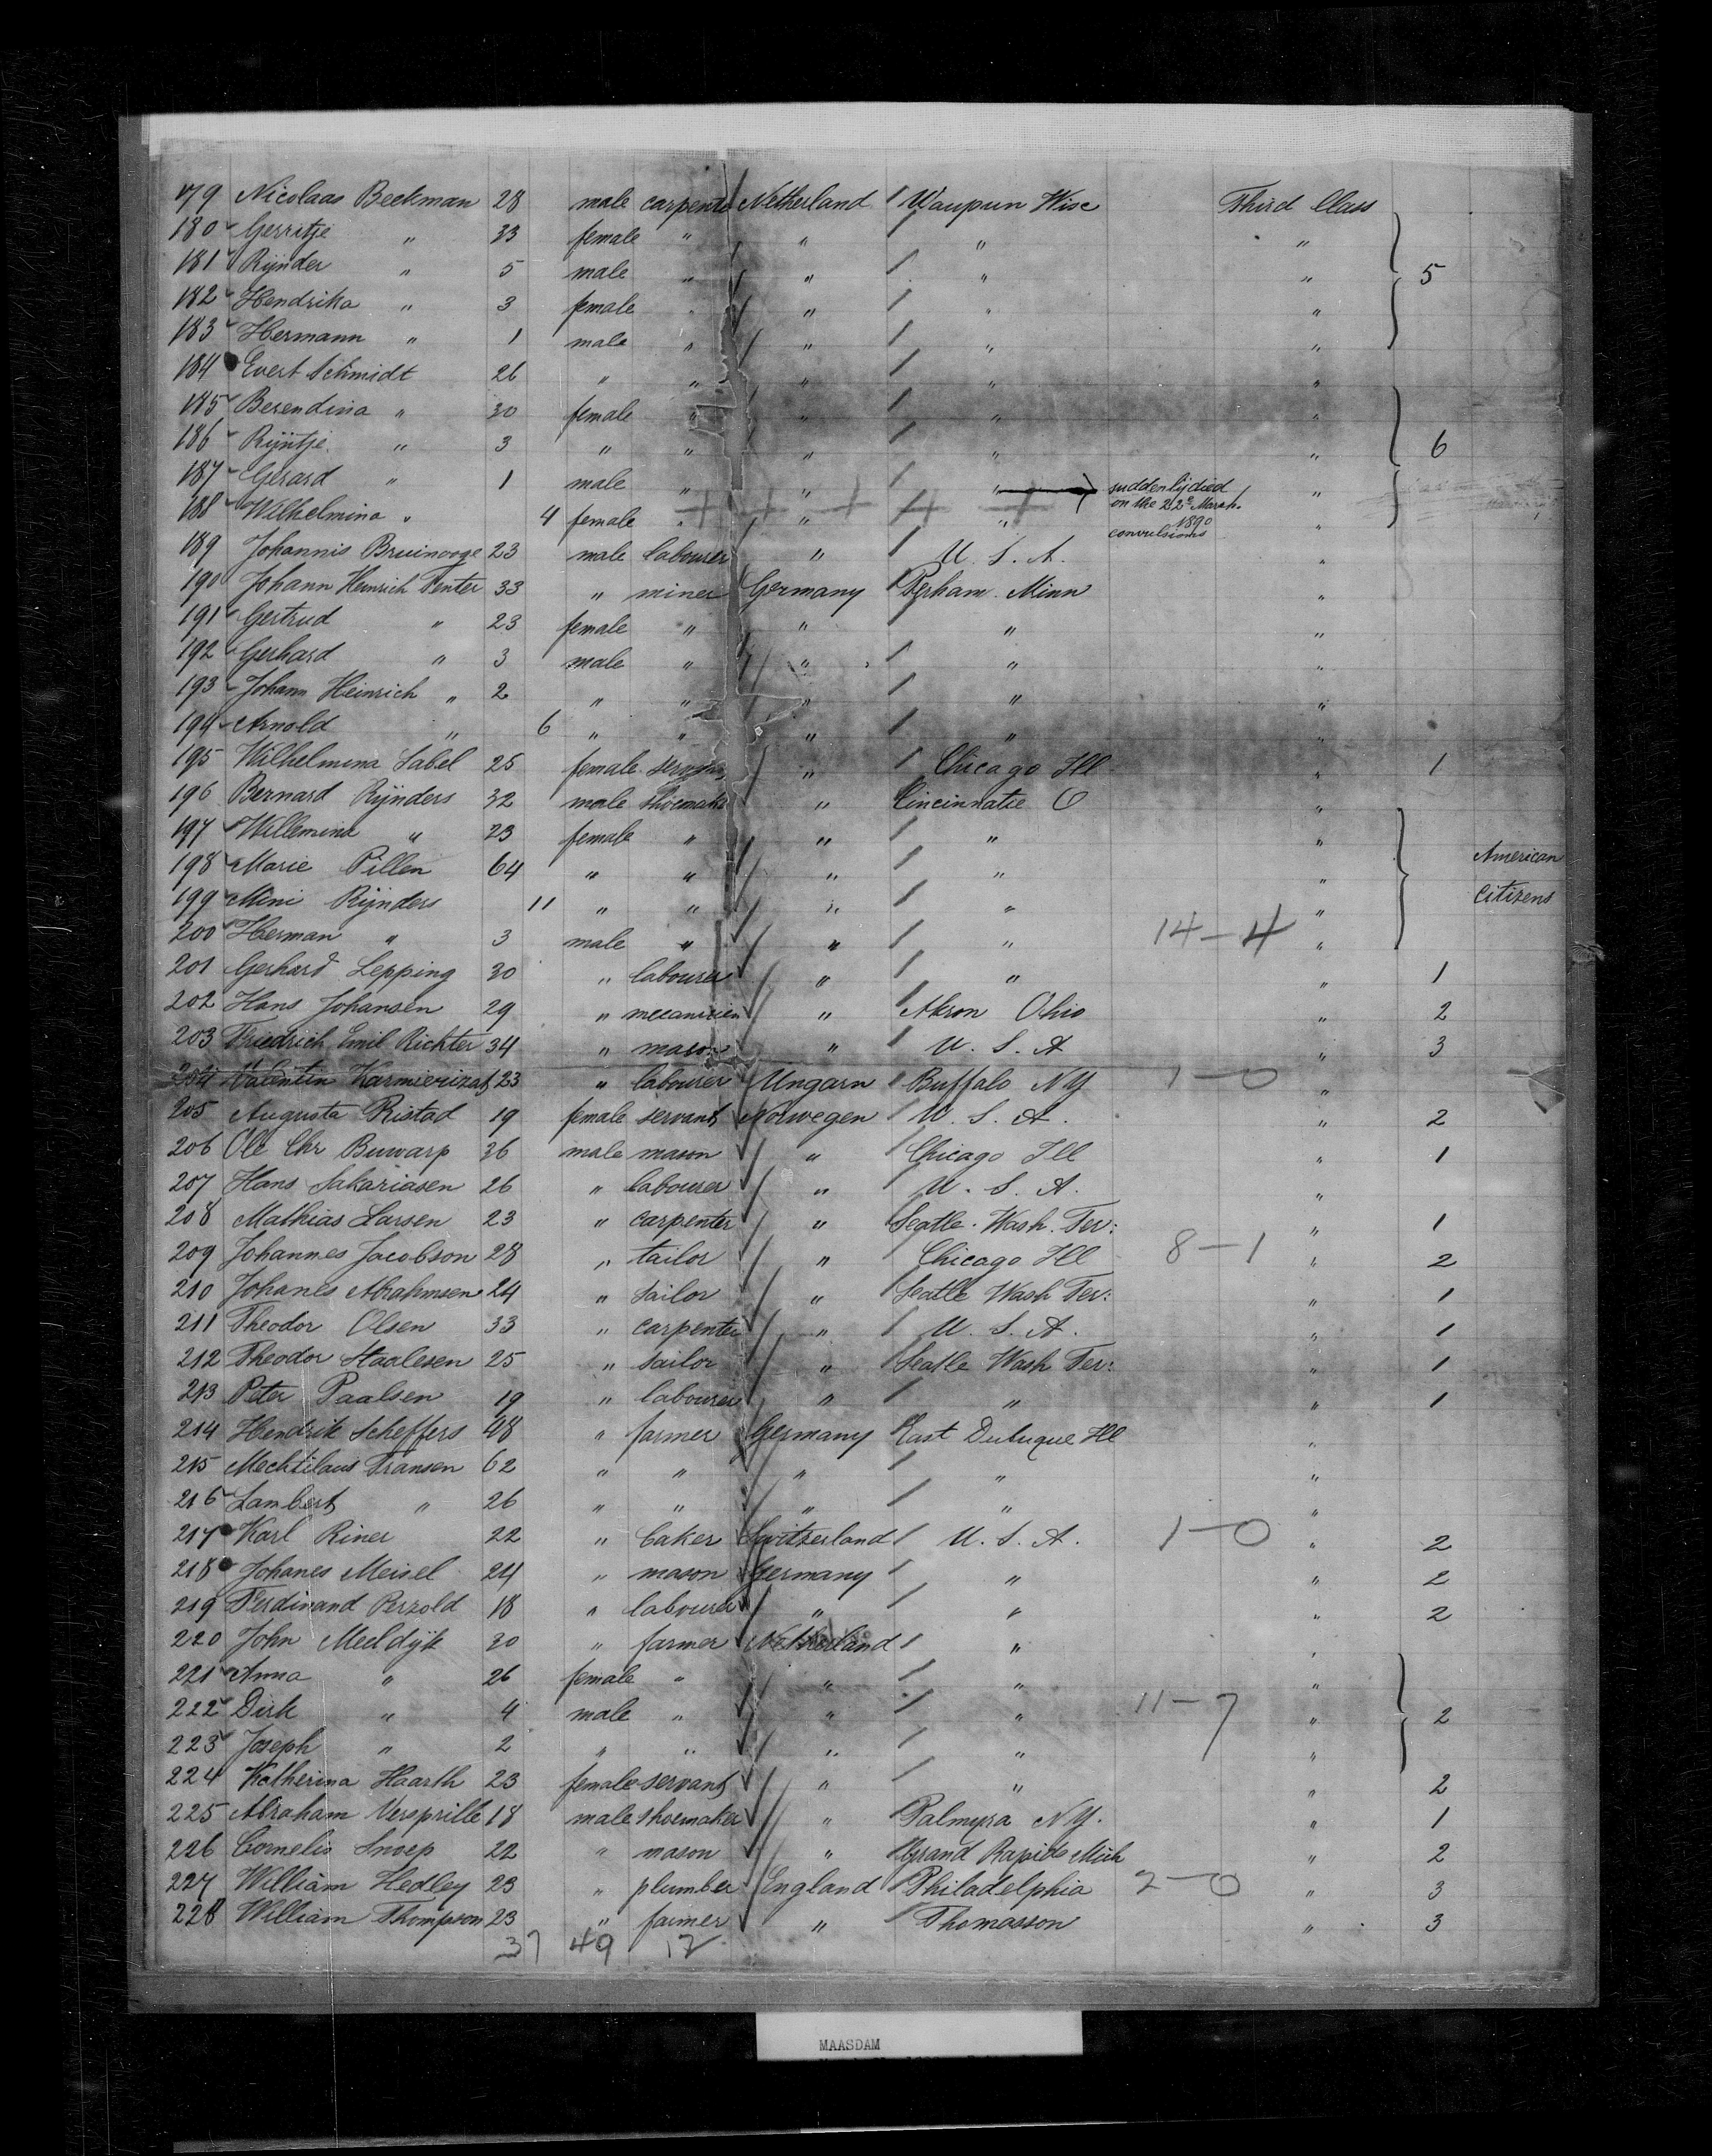 179 Nicolaas Beekman 28 male carpenter Netherland Waupun Wisc Third Class
180 Gerritje " 33 female " " " "
181 Rijnder " 5 male " " " " 5
182 Hendrika " 3 female " " " "
183 Hermann " 1 male " " " "
184 Evert Schmidt 26 " " " " "
185 Berendina " 30 female " " " "
186 Rijntje " 3 " " " " " 6
187 Gerard " 1 male " " " suddenly died "
188 Wilhelmina " 4 female " " " on the 22e March 1890 convulsions "
189 Johannis Bruinooge 23 male labourer " U. S. A. "
190 Johann Heinrich Tenter 33 " miner Germany Perham Minn "
191 Gertrud " 23 female " " " "
192 Gerhard " 3 male " " " "
193 Johann Heinrich " 2 " " " " "
194 Arnold " 6 " " " " "
195 Wilhelmina Sabel 25 female servant " Chicago Ill " 1
196 Bernard Rijnders 32 male shoemaker " Cincinnatie O "
197 Willemina " 23 female " " " "
198 Marie Pillen 64 " " " " " American
199 Mini Rijnders 11 " " " " " Citizens
200 Herman " 3 male " " " 14-4 "
201 Gerhard Lepping 30 " labourer " " " 1
202 Hans Johansen 29 " mecanicien " Akron Ohio " 2
203 Friedrich Emil Richter 34 " mason " U. S. A " 3
204 Valentin 23 " labourer Ungarn Buffalo NY 1-0 "
205 Augusta Ristad 19 female servant Norwegen U. S. A. " 2
206 Ole Chr Buwarp 36 male mason " Chicago Ill " 1
207 Hans Sakariasen 26 " labourer " U. S. A. "
208 Mathias Larsen 23 " carpenter " Seatle Wash. Ter: " 1
209 Johannes Jacobson 28 " tailor " Chicago Ill 8-1 " 2
210 Johanes Abrahmsen 24 " sailor " Seatle Wash Ter: " 1
211 Theodor Olsen 33 " carpenter " U. S. A. " 1
212 Theodor Staalesen 25 " sailor " Seatle Wash Ter: " 1
213 Peter Paalsen 19 " labourer " " " 1
214 Hendrik Scheffers 48 " farmer Germany East Dubuque Ill "
215 Mechtilaus Fransen 62 " " " " "
216 Lambert " 26 " " " " "
217 Karl Riner 22 " baker Switzerland U. S. A. 1-0 " 2
218 Johanes Meisel 24 " mason Germany " " 2
219 Ferdinand Perzold 18 " labourer " " " 2
220 John Meeldijk 30 " farmer Netherland " "
221 Anna " 26 female " " " "
222 Dirk " 4 male " " " 11-7 " 2
223 Joseph " 2 " " " " "
224 Katherina Haarth 23 female servant " " " 2
225 Abraham Versprille 18 male shoemaker " Palmyra NY. " 1
226 Cornelis Snoep 22 " mason " Grand Rapids Mich " 2
227 William Hedley 23 " plumber England Philadelphia 2-0 " 3
228 William Thompson 23 " farmer " Thomasson " 3
37 49 12
MAASDAM